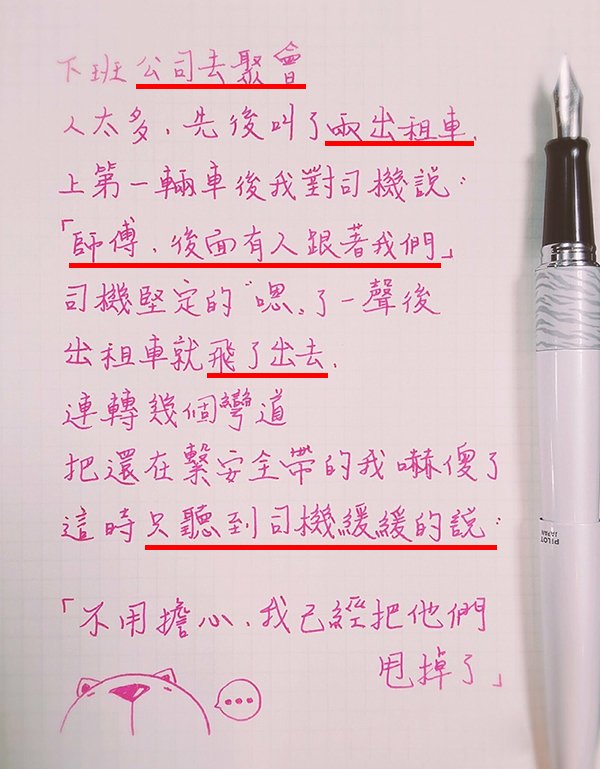 下班公司去聚會
人太多，先後叫了兩出租車，
上第一輛車後我對司機説：
「師傅，後面有人跟著我們」
司機堅定的“嗯„了一聲後
出租車就飛了出去，
連轉幾個彎道
把還在繫安全帶的我嚇傻了
這時只聽到司機緩緩的説：
「不用擔心，我已經把他們
甩掉了」
...
PILOT
JAPAN